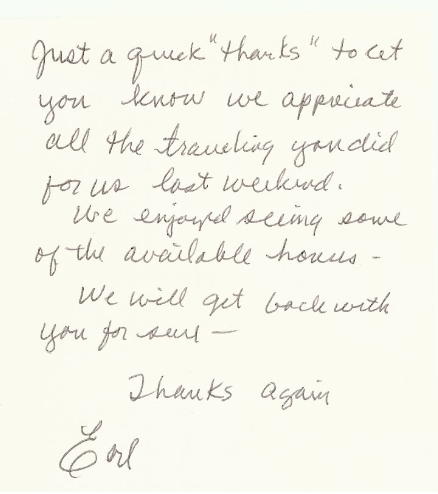 Just a quick "thanks" to let
you know we appreciate
all the traveling you did
for us last weekend.
We enjoyed seeing some
of the available houses -
We will get back with
you for sure —
Thanks again
Earl